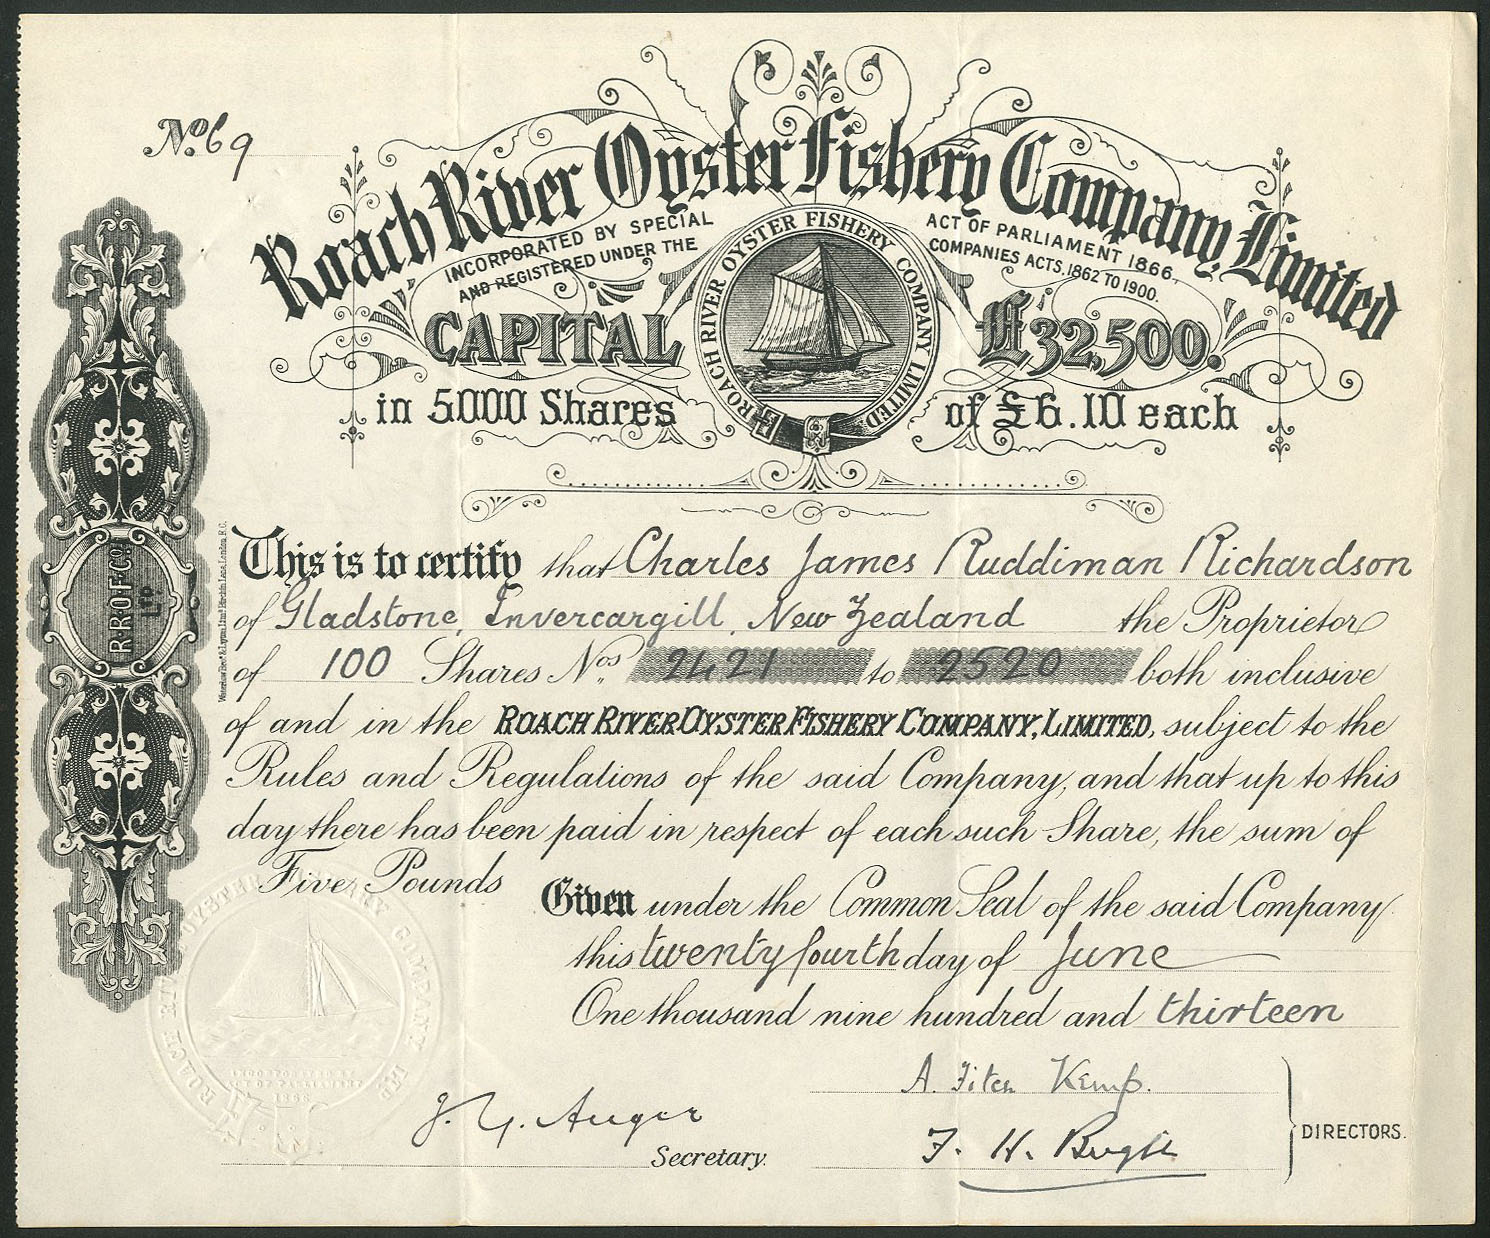 No. 69
Roach River Oyster Fishery Company, Limited
INCORPORATED BY SPECIAL ACT OF PARLIAMENT 1866.
AND REGISTERED UNDER THE COMPANIES ACTS, 1862 TO 1900.
ROACH RIVER OYSTER FISHERY COMPANY LIMITED
CAPITAL £32,500.
in 5000 Shares of £6.10 each
R.R.O.F.Co. LTD.
This is to certify that Charles James Ruddiman Richardson
of Gladstone, Invercargill, New Zealand the Proprietor
of 100 Shares Nos. 2421 to 2520 both inclusive
of and in the ROACH RIVER OYSTER FISHERY COMPANY, LIMITED, subject to the
Rules and Regulations of the said Company, and that up to this
day there has been paid in respect of each such Share, the sum of
Five Pounds
Given under the Common Seal of the said Company
this twenty fourth day of June
One thousand nine hundred and thirteen
ROACH RIVER OYSTER FISHERY COMPANY LTD
INCORPORATED BY
ACT OF PARLIAMENT
1866
A. Fitch Kemp.
J. Y. Auger
Secretary.
F. H.
DIRECTORS.